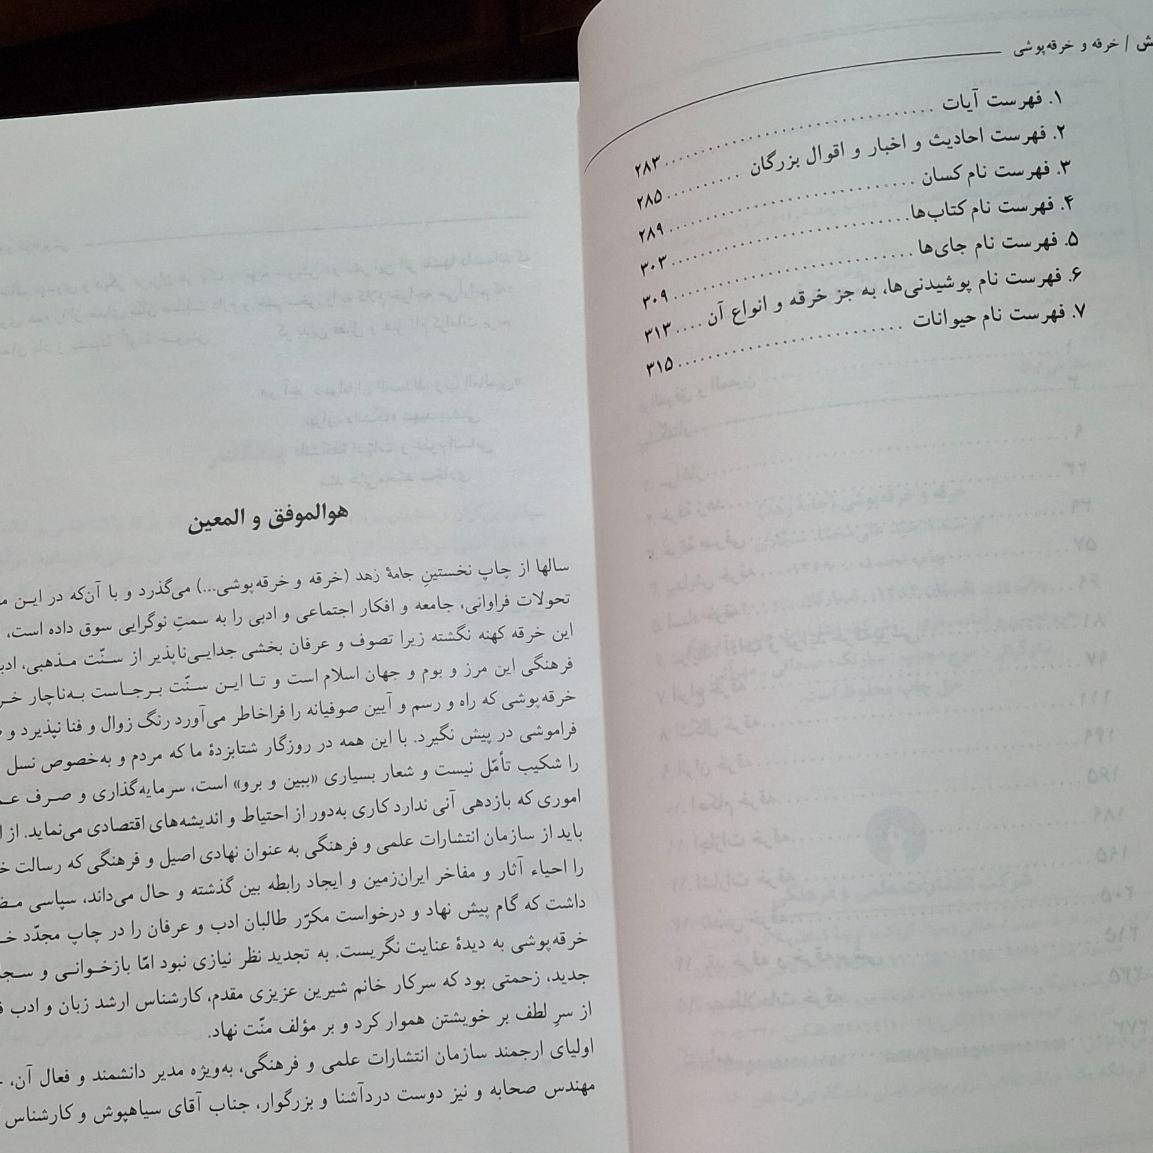 خرقه و خرقه‌پوشی
۱. فهرست آیات ۲۸۳
۲. فهرست احادیث و اخبار و اقوال بزرگان ۲۸۵
۳. فهرست نام کسان ۲۸۹
۴. فهرست نام کتاب‌ها ۳۰۳
۵. فهرست نام جای‌ها ۳۰۹
۶. فهرست نام پوشیدنی‌ها، به جز خرقه و انواع آن ۳۱۳
۷. فهرست نام حیوانات ۳۱۵
هوالموفق و المعین
سالها از چاپ نخستینِ جامهٔ زهد (خرقه و خرقه‌پوشی...) می‌گذرد و با آن‌که در ایـن
تحولات فراوانی، جامعه و افکار اجتماعی و ادبی را به سمتِ نوگرایی سوق داده است،
این خرقه کهنه نگشته زیرا تصوف و عرفان بخشی جدایی‌ناپذیر از سـنّت مـذهبی،
فرهنگی این مرز و بوم و جهان اسلام است و تـا ایـن سـنّت بـرجـاست بـه‌ناچار
خرقه‌پوشی که راه و رسم و آیین صوفیانه را فراخاطر می‌آورد رنگ زوال و فنا نپذیرد و
فراموشی در پیش نگیرد. با این همه در روزگار شتابزدهٔ ما که مردم و به‌خصوص نسل
را شکیب تأمّل نیست و شعار بسیاری «ببین و برو» است، سرمایه‌گذاری و صـرف
اموری که بازدهی آنی ندارد کاری به‌دور از احتیاط و اندیشه‌های اقتصادی می‌نماید. از
باید از سازمان انتشارات علمی و فرهنگی به عنوان نهادی اصیل و فرهنگی که رسالت
را احیاء آثار و مفاخر ایران‌زمین و ایجاد رابطه بین گذشته و حال می‌داند، سپاسی
داشت که گام پیش نهاد و درخواست مکرّر طالبان ادب و عرفان را در چاپ مجدّد
خرقه‌پوشی به دیدهٔ عنایت نگریست. به تجدید نظر نیازی نبود امّا بازخـوانـی و
جدید، زحمتی بود که سرکار خانم شیرین عزیزی مقدم، کارشناس ارشد زبان و ادب
از سرِ لطف بر خویشتن هموار کرد و بر مؤلف منّت نهاد.
اولیای ارجمند سازمان انتشارات علمی و فرهنگی، به‌ویژه مدیر دانشمند و فعال آن،
مهندس صحابه و نیز دوست دردآشنا و بزرگوار، جناب آقای سیاهپوش و کارشناس